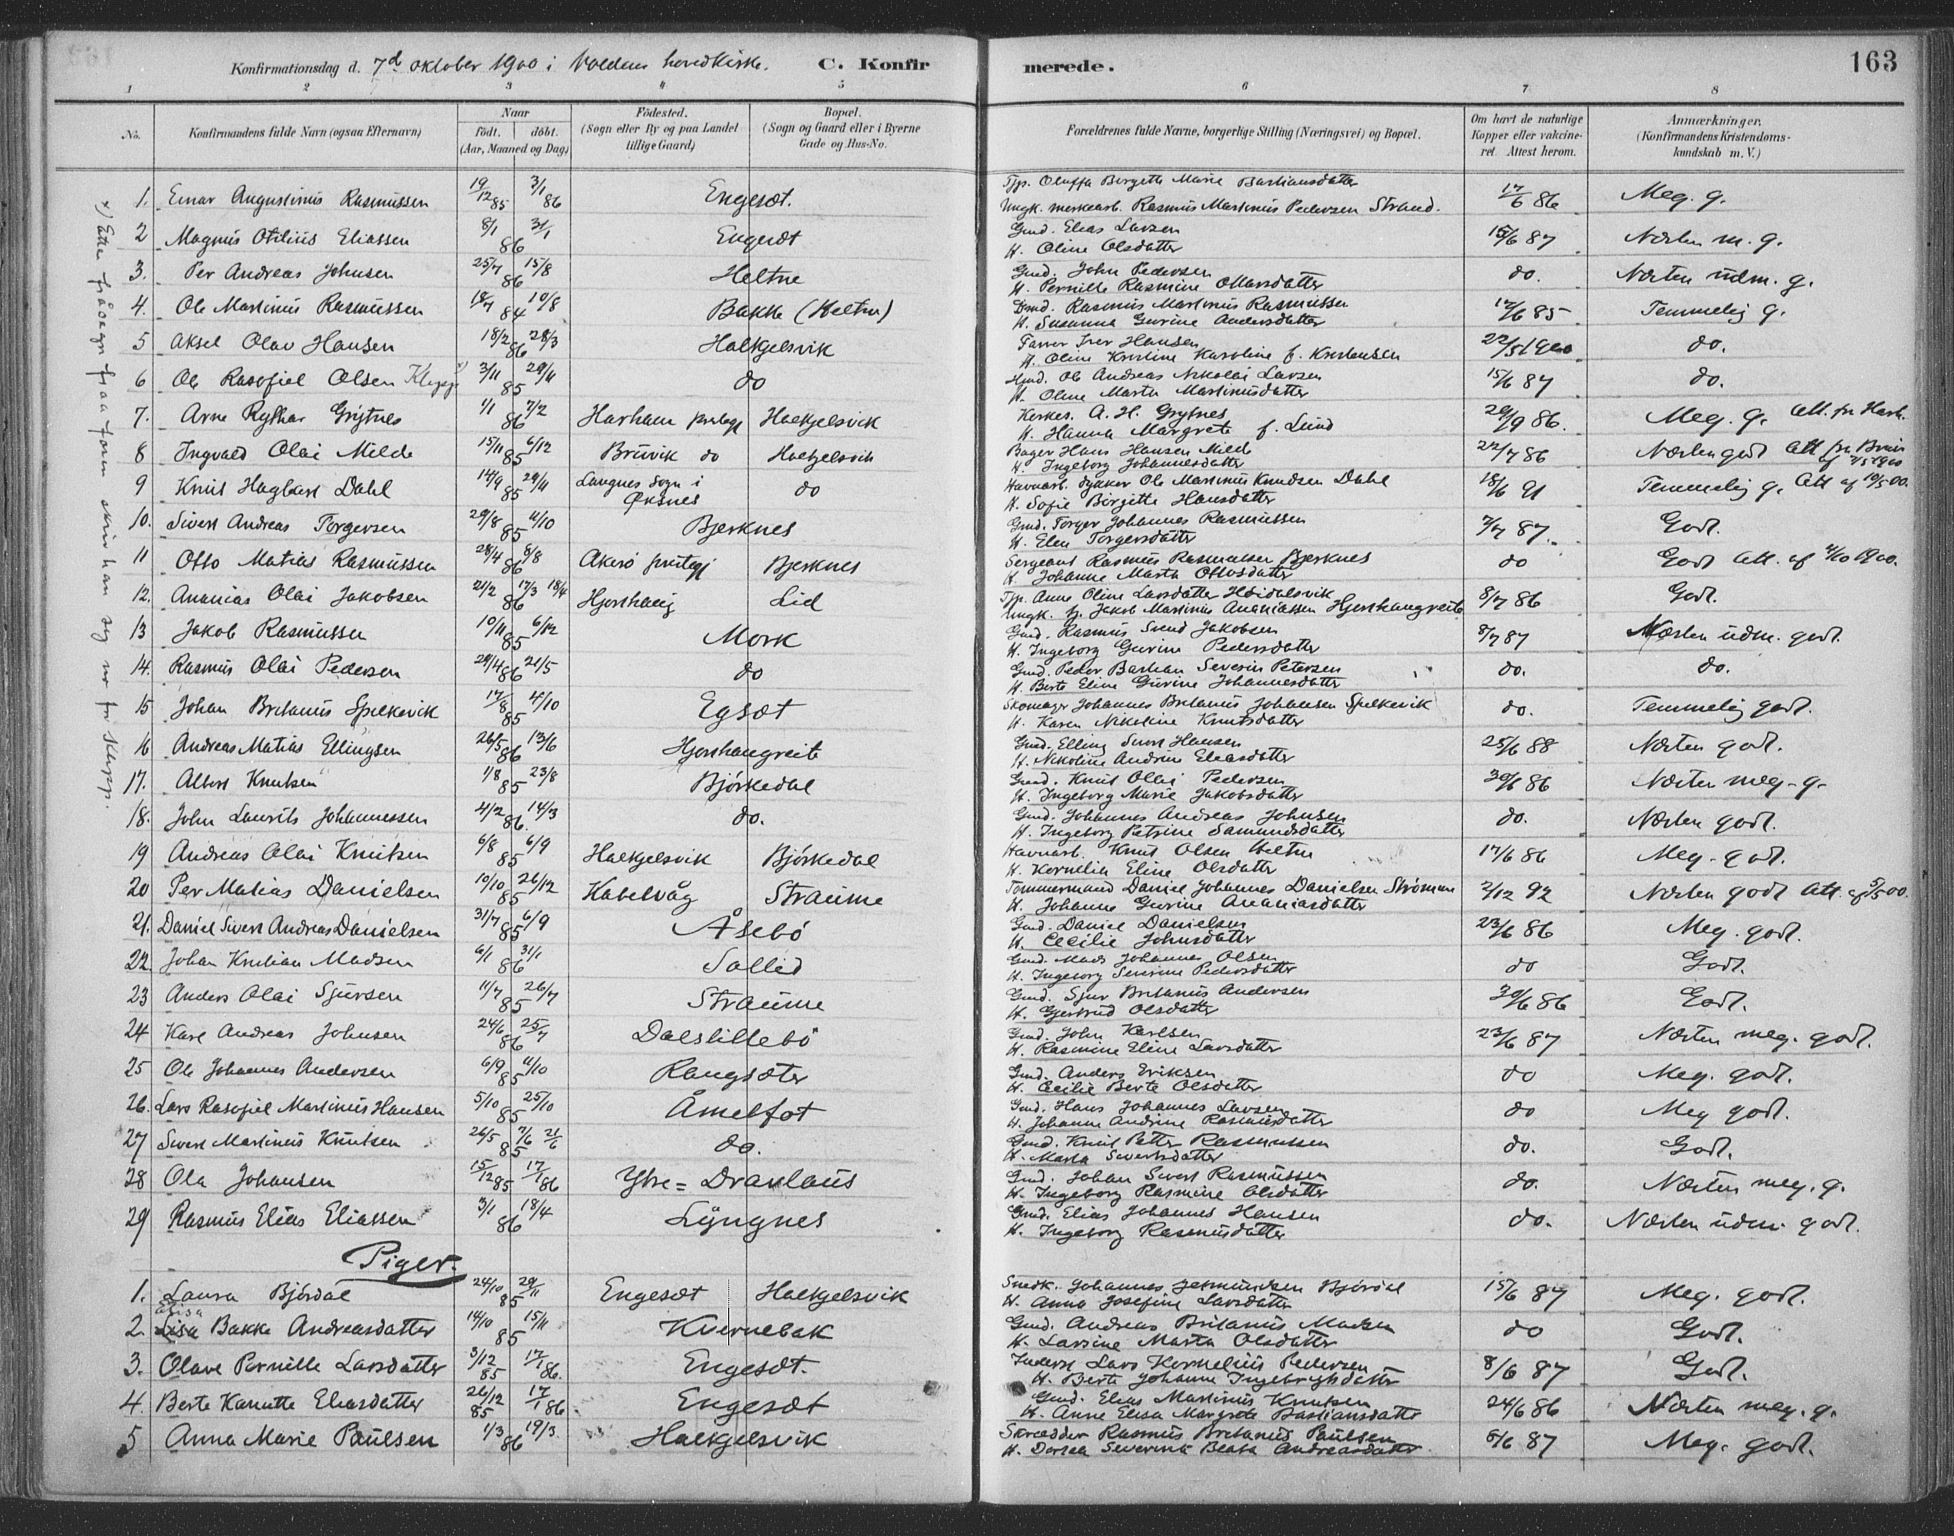 163
Konfirmationsdag d. 7d oktober 1900 i Voldens hovedkirke. C. Konfirmerede.
1 2 3 4 5 6 7 8
No. Konfirmandens fulde Navn (ogsaa Efternavn) Naar født. døbt. (Aar, Maaned og Dag) Fødested. (Sogn eller By og paa Landet tillige Gaard) Bopæl. (Sogn og Gaard eller i Byerne Gade og Hus-No. Forældrenes fulde Navne, borgerlige Stilling (Næringsvei) og Bopæl. Om havt de naturlige Kopper eller vakcineret. Attest herom. Anmærkninger. (Konfirmandens Kristendomskundskab m. V.)
1. Einar Augustinus Rasmussen 19/12 85 3/1 86 Engesæt. Tjp. Oluffa Bergette Marie Bastiansdatter
Ungk. merkearb. Rasmus Martinus Pedersen Strand. 17/6 86 Meg. g.
2 Magnus Otilius Eliassen 8/1 31/1 86 Engesæt Gmd. Elias Larsen
H. Oline Olsdatter 15/6 87 Næsten m. g.
3. Per Andreas Johnsen 25/7 15/8 86 Heltne Gmd. John Pedersen
H. Pernille Rasmine Olsdatter do. Næsten udm. g.
4. Ole Martinus Rasmussen 18/7 10/8 84 Bakke (Heltne) Rasmus Martinus Rasmussen
H. Susanna Gurine Andersdatter 17/6 85 Temmelig g.
5 Aksel Olav Hansen 18/2 28/3 86 Halkjelsvik Farver Iver Hansen
H. Oline Kristine Karoline f. Kristensen 22/5 1900 do.
6 Ole Rasofiel Olsen 3/11 29/11 85 do Ole Andreas Nikolai Larsen
H. Oline Marta Martinusdatter 15/6 87 do.
7. Arne Rytkar Grytnes 1/1 7/2 86 Harham prstgj Halkjelsvik Kirkes. A. H. Grytnes
H. Hanna Margrete f. Lund 29/9 86. Meg. g. Att. fr Harh.
8 Ingvald Olai Milde 15/11 6/12 85 Bruvik do Halkjelsvik Bager Hans Hansen Milde
H. Ingeborg Johannesdatter 22/7 86 Næsten godt Att fra Bruv. af 7/5 1900
9 Knut Hagbart Dahl 14/9 29/11 85 Langnes sogn i Øksnes do Havnarb. dykker Ole Martinus Knudsen Dahl
H. Sofie Birgitte Hansdatter 18/6 91 Temmelig g. Att af 19/5 00.
10. Sivert Andreas Torgersen 29/8 11/10 85 Bjerknes Gmd. Torger Johannes Rasmussen
H. Elen Torgersdatter 7/7 87. Godt.
11 Otto Matias Rasmussen 28/4 8/8 86 Akerø prstgj Bjerknes Sergeant Rasmus Rasmussen Bjerknes
H. Johanne Marta Ottosdatter do Godt Att. af 4/10 1900.
12. Ananias Olai Jakobsen 21/2 17/3 18/4 86 Hjorthaug Lid Tjp. Anne Oline Larsdatter Høidalsvik
Ungk. fj. Jakob Martinus Ananiassen Hjorthaugreite 8/7 86 Godt.
13 Jakob Rasmussen 10/11 6/12 85 Mork Gmd. Rasmus Sivend Jakobsen
H. Ingeborg Gurine Pedersdatter 8/7 87 Næsten udm. godt.
14. Rasmus Olai Pedersen 29/4 21/5 86 do Gmd. Peder Bastian Severin Petersen
H. Berte Eline Gurine Johannesdatter do. do.
15 Johan Britanus Spilkevik 17/8 4/10 85 Egsæt Skomager Johannes Britanus Johansen Spilkevik
H. Karen Nikoline Knutsdatter do. Temmelig godt.
16 Andreas Matias Ellingsen 26/5 13/6 86 Hjorthaugreite Gmd. Elling Sivert Hansen
H. Nikoline Andrine Eliasdatter 25/6 88 Næsten godt.
17. Albert Knutsen 1/8 23/8 85 Bjørkedal Gmd. Knut Olai Pedersen
H. Ingeborg Marie Jakobsdatter 30/6 86 Næsten meg. g.
18. John Laurits Johannessen 4/2 14/3 86. do. Gmd. Johannes Andreas Johnsen
H. Ingeborg Petrine Samundsdatter do. Næsten godt.
19 Andreas Olai Knutsen 6/8 6/9 85 Halkjelsvik Bjørkedal Havnarb. Knut Olsen Heltne
H. Kornelia Eline Olsdatter 17/6 86 Meg. godt.
20 Per Matias Danielsen 10/10 26/12 85 Kabelvåg Straume Tømmermand Daniel Johannes Danielsen Strømme
H. Johanne Gurine Ananiasdatter 2/12 92 Næsten godt Att. af 5/5 00.
21. Daniel Sivert Andreas Danielsen 31/7 6/9 85 Åsebø Gmd. Daniel Danielsen
H. Cecilie Johnsdatter 23/6 86 Meg. godt.
22. Johan Kristian Madsen 6/1 31/1 86 Sollid Gmd. Mads Johannes Olsen
H. Ingeborg Severine Pedersdatter do Godt.
23 Anders Olai Sjursen 11/7 26/7 85 Straume Gmd. Sjur Britanus Andersen
H. Gjertrud Olsdatter 30/6 86 Godt.
24 Karl Andreas Johnsen 24/6 25/7 86 Dalslillebø Gmd. John Karlsen
H. Rasmine Eline Larsdatter 23/6 87 Næsten meg. godt.
25 Ole Johannes Andersen 6/9 11/10 85 Rangsæter Gmd. Anders Eriksen
H. Cecilie Berte Olsdatter do Meg. godt.
26. Lars Rasofiel Martinus Hansen 5/10 25/10 85 Åmelfot Gmd. Hans Johannes Larsen
H. Johanne Andrine Rasmusdatter do Meg godt.
27 Sivert Martinus Knutsen 26/5 7/6 21/6 85 do. Gmd. Knut Petter Rasmussen
H. Marta Sivertsdatter do. Godt.
28 Ola Johansen 15/12 85 17/1 86 Ytre=Dravlaus Gmd. Johan Sivert Rasmussen
H. Ingeborg Rasmine Olsdatter do. Næsten meg. g.
29 Rasmus Elias Eliassen 3/1 18/4 86 Lyngnes Gmd. Elias Johannes Hansen
H. Ingeborg Rasmusdatter do. Næsten udm. godt.
Piger.
1. Laura Bjørdal 24/10 29/11 85 Engesæt Halkjelsvik Snedk. Johannes Jetmundsen Bjørdal
H. Anna Josefine Larsdatter 15/6 87 Meg. godt.
2. Elisa Bakke Andreasdatter 14/10 15/11 85 Kvernebak Gmd. Andreas Britanus Madsen
H. Larsine Marta Olsdatter do Godt.
3. Olave Pernille Larsdatter 3/12 85 17/1 86. Engesæt. Inderst Lars Kornelius Pedersen
H. Berte Johanne Ingebrigtsdatter 8/6 87 Godt.
4. Berte Kanutte Eliasdatter 26/12 85 17/1 86 Engesæt Gmd. Elias Martinus Knutsen
H. Anne Elisa Margrete Bastiansdatter 24/6 86 Næsten meg. g.
5 Anna Marie Paulsen 1/3 19/3 86 Halkjelsvik Skrædder Rasmus Britanus Paulsen
H. Dorsea Severine Beata Andreasdatter 5/6 87 Meg. godt.
x) Ette fråsegn fraa faren skriv han seg no for Klepp.